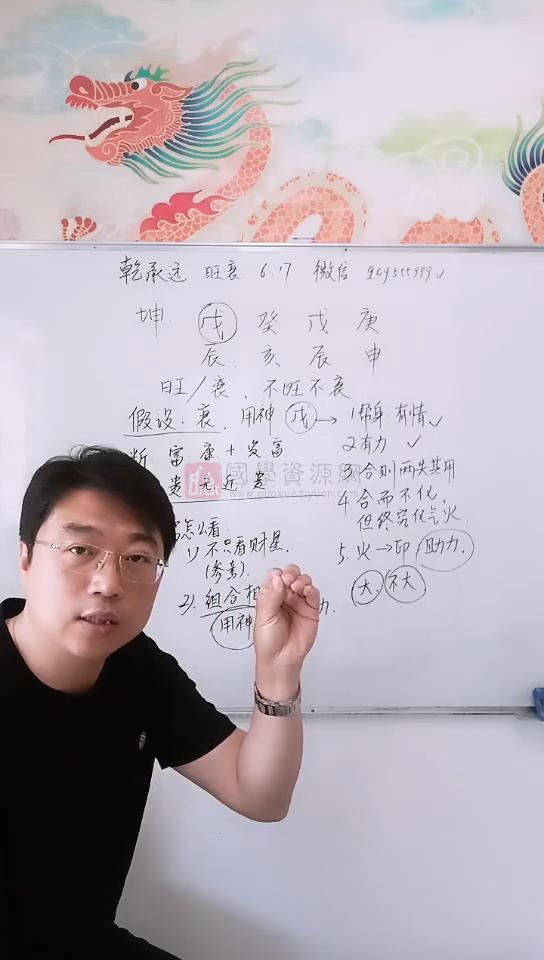 乾承远 旺衰 6.17 微信
坤 戊 癸 戊 庚
辰 亥 辰 申
旺/衰，不旺不衰
假设：衰，用神 戊 → 1 帮身 有情 ✓
2 有力 ✓
3 合则两失其用
4. 合而不化，
但终究化气火.
5. 火 → 印 助力
大 不大
断：富 康 + 发富
贵 无近贵
怎么看
1) 不只看财星.
(参考)
2). 组合
用神
力.
國學資源網